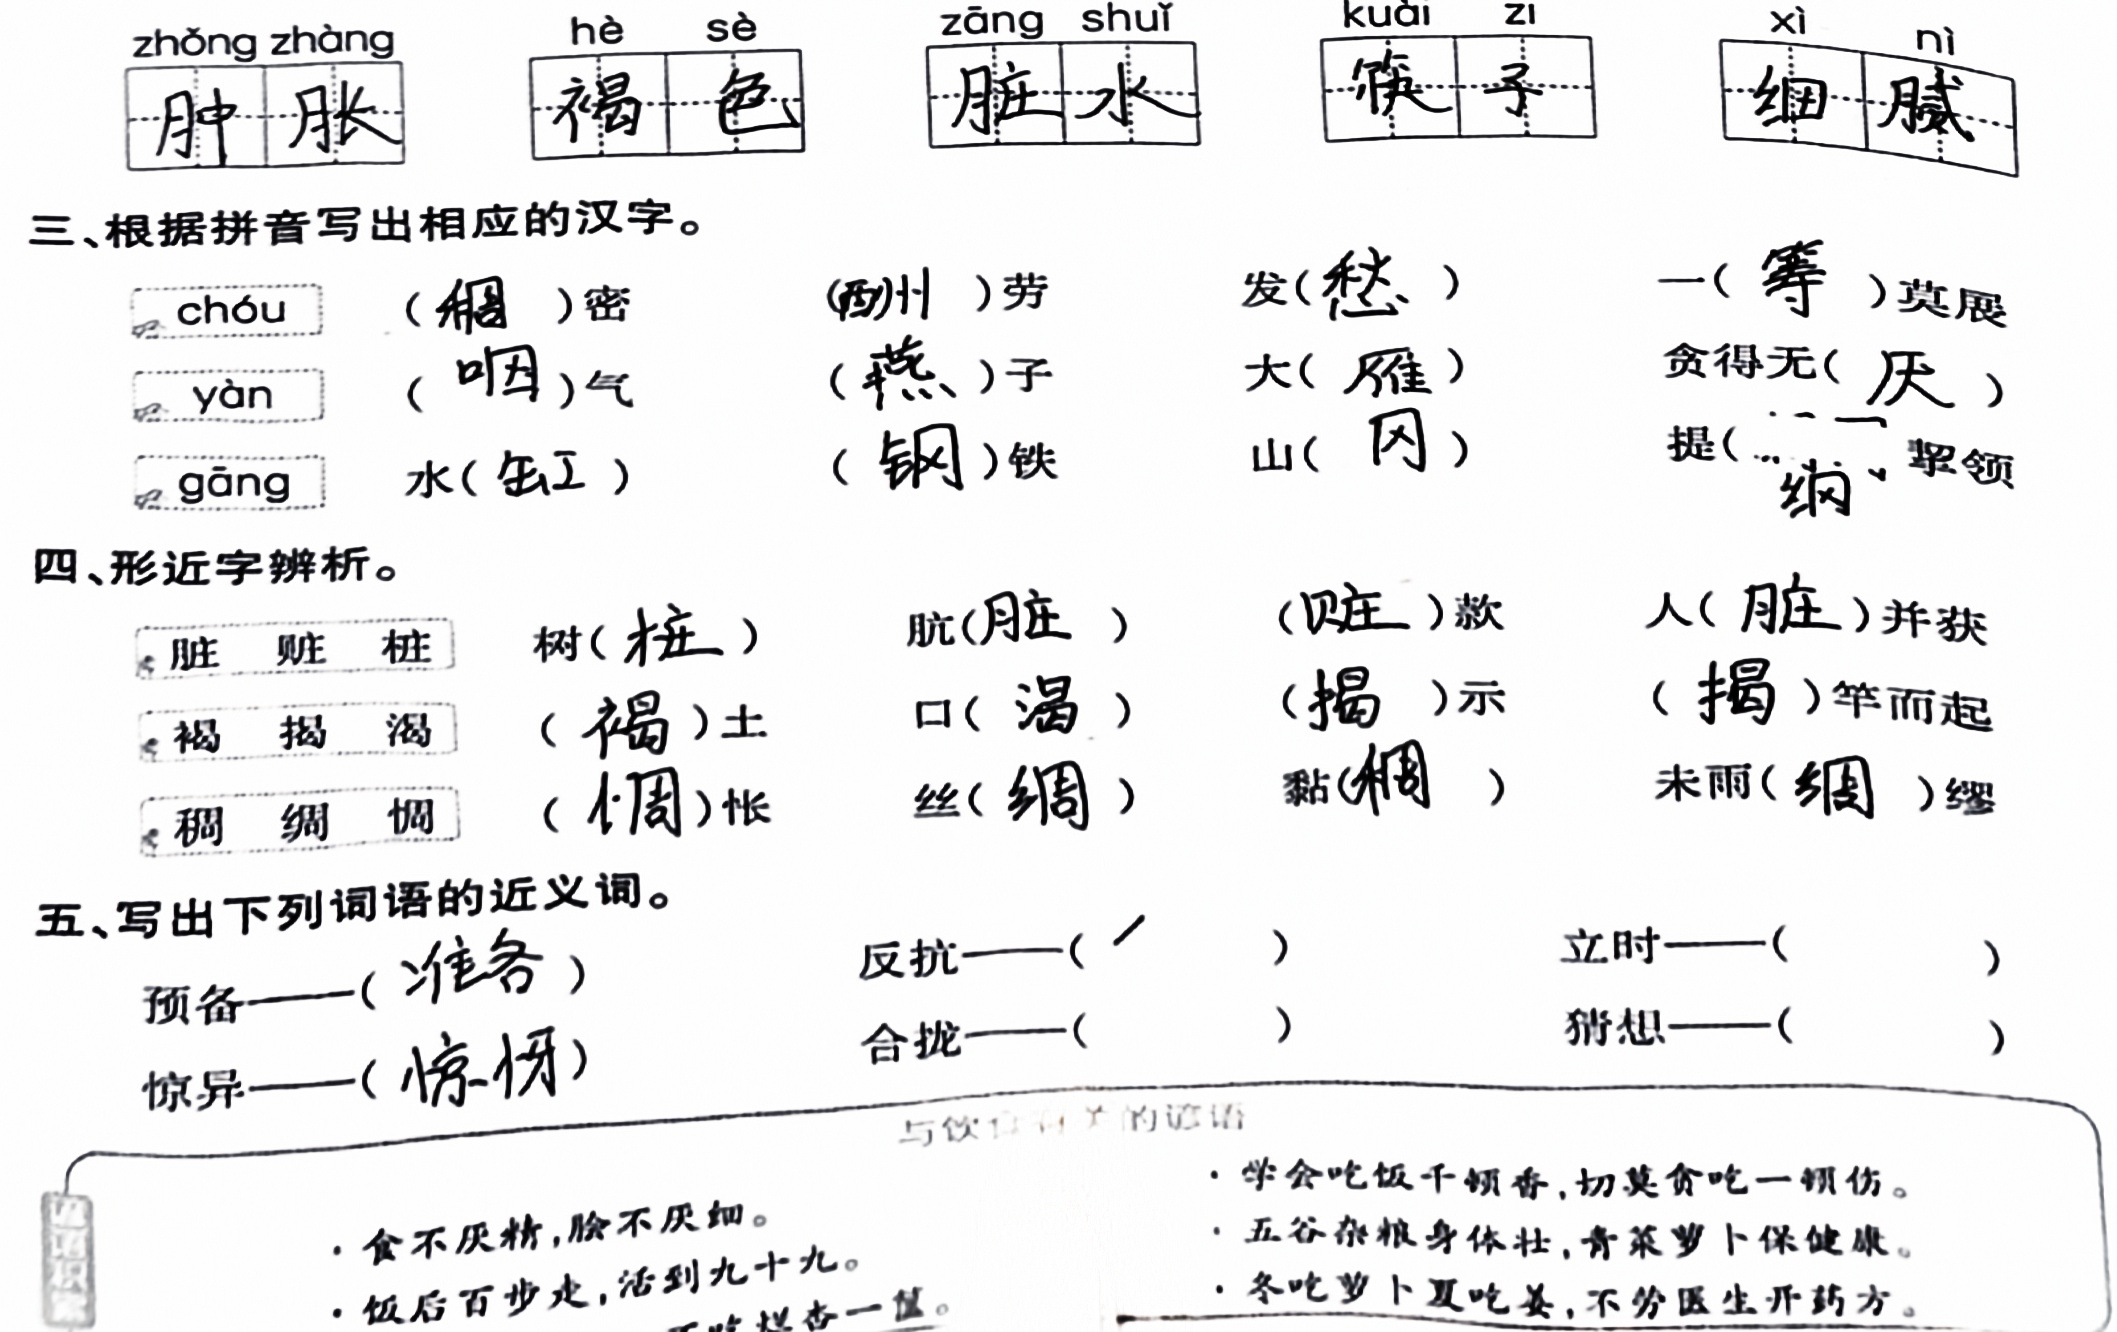 zhǒng zhàng hè sè zāng shuǐ kuài zi xì nì
肿胀 褐色 脏水 筷子 细腻
三、根据拼音写出相应的汉字。
chóu (稠)密 (酬)劳 发(愁) 一(筹)莫展
yàn (咽)气 (燕)子 大(雁) 贪得无(厌)
gāng 水(缸) (钢)铁 山(冈) 提(纲)挈领
四、形近字辨析。
脏 赃 桩 树(桩) 肮(脏) (赃)款 人(脏)并获
褐 揭 渴 (褐)土 口(渴) (揭)示 (揭)竿而起
稠 绸 惆 (惆)怅 丝(绸) 黏(稠) 未雨(绸)缪
五、写出下列词语的近义词。
预备——(准备) 反抗——( ) 立时——( )
惊异——(惊讶) 合拢——( ) 猜想——( )
与饮食有关的谚语
·食不厌精,脍不厌细。
·饭后百步走,活到九十九。
杏一筐。
·学会吃饭千顿香,切莫贪吃一顿伤。
·五谷杂粮身体壮,青菜萝卜保健康。
·冬吃萝卜夏吃姜,不劳医生开药方。